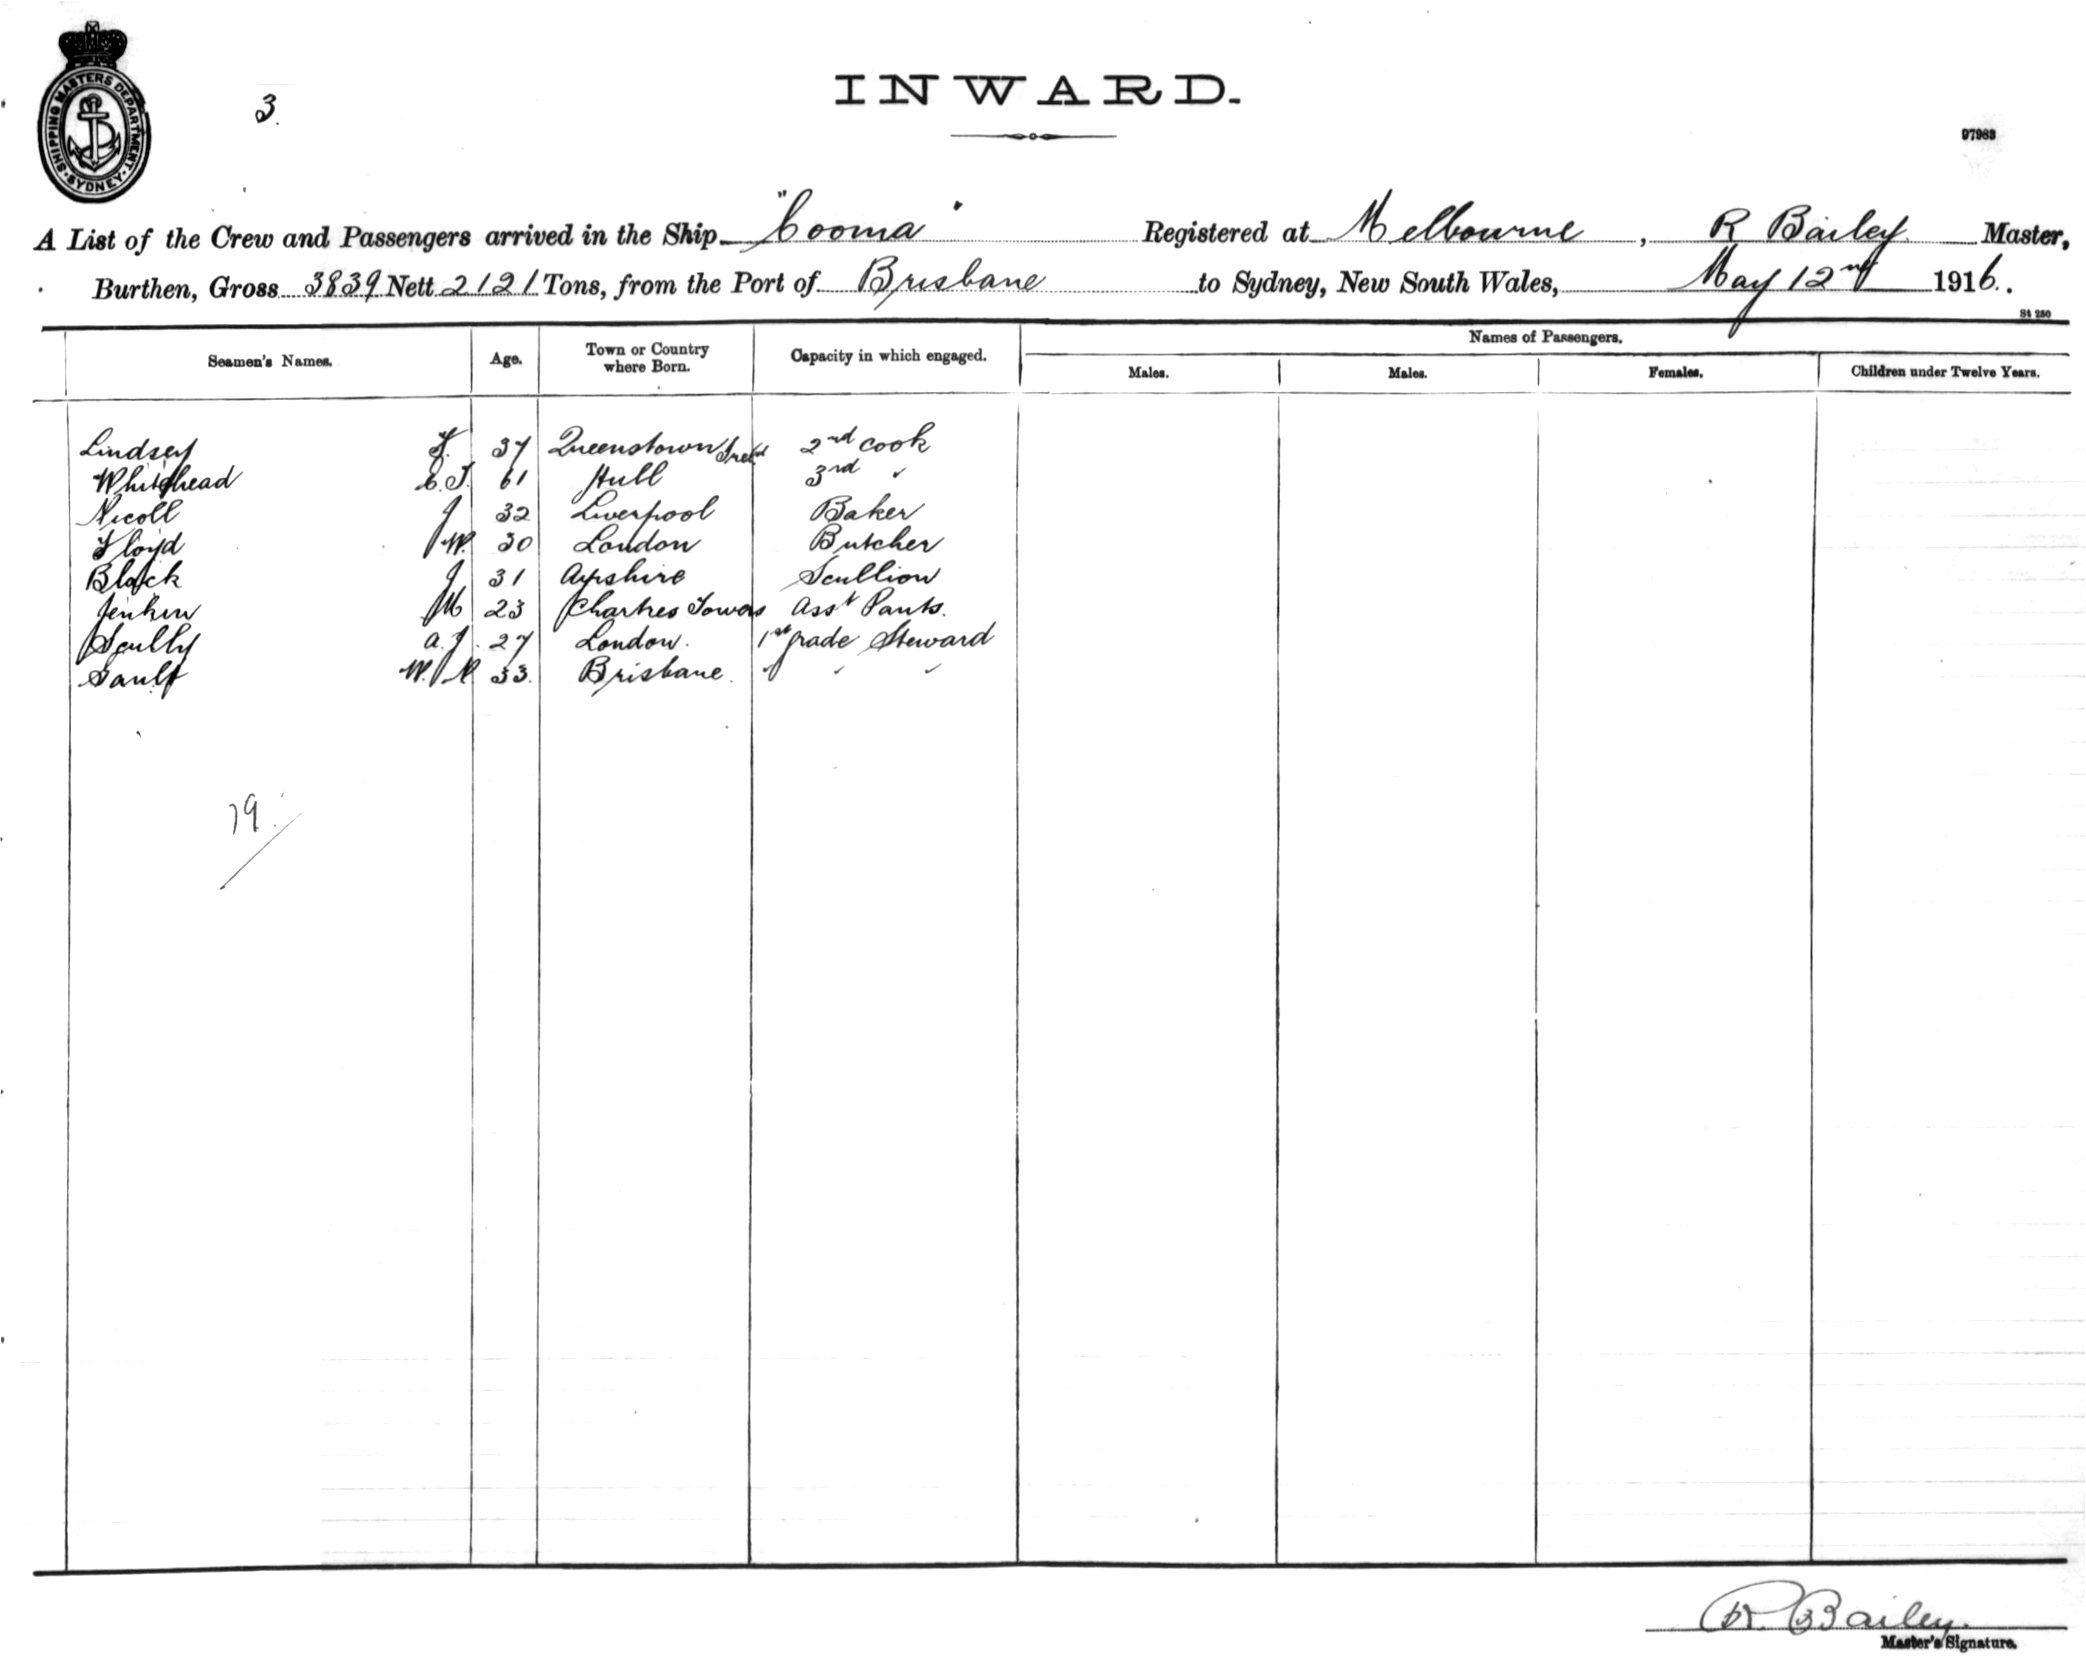 SHIPPING MASTERS DEPARTMENT. SYDNEY.
3.
INWARD.
97983
A List of the Crew and Passengers arrived in the Ship "Cooma" Registered at Melbourne, R Bailey Master,
Burthen, Gross 3839 Nett 2121 Tons, from the Port of Brisbane to Sydney, New South Wales, May 12nd 1916.
St 250
Names of Passengers.
Seamen's Names. Age. Town or Country where Born. Capacity in which engaged. Males. Males. Females. Children under Twelve Years.
Lindsey F. 37 Queenstown Ireld 2nd cook
Whitehead C. T. 61 Hull 3rd "
Nicoll J 32 Liverpool Baker
Floyd W. 30 London Butcher
Black J 31 Ayrshire Scullion
Jenkin M 23 Chartres Towers Asst Pants.
Scully A. J. 27 London. 1st grade Steward
Sault W. N 33. Brisbane. " " "
79.
R. Bailey.
Master's Signature.